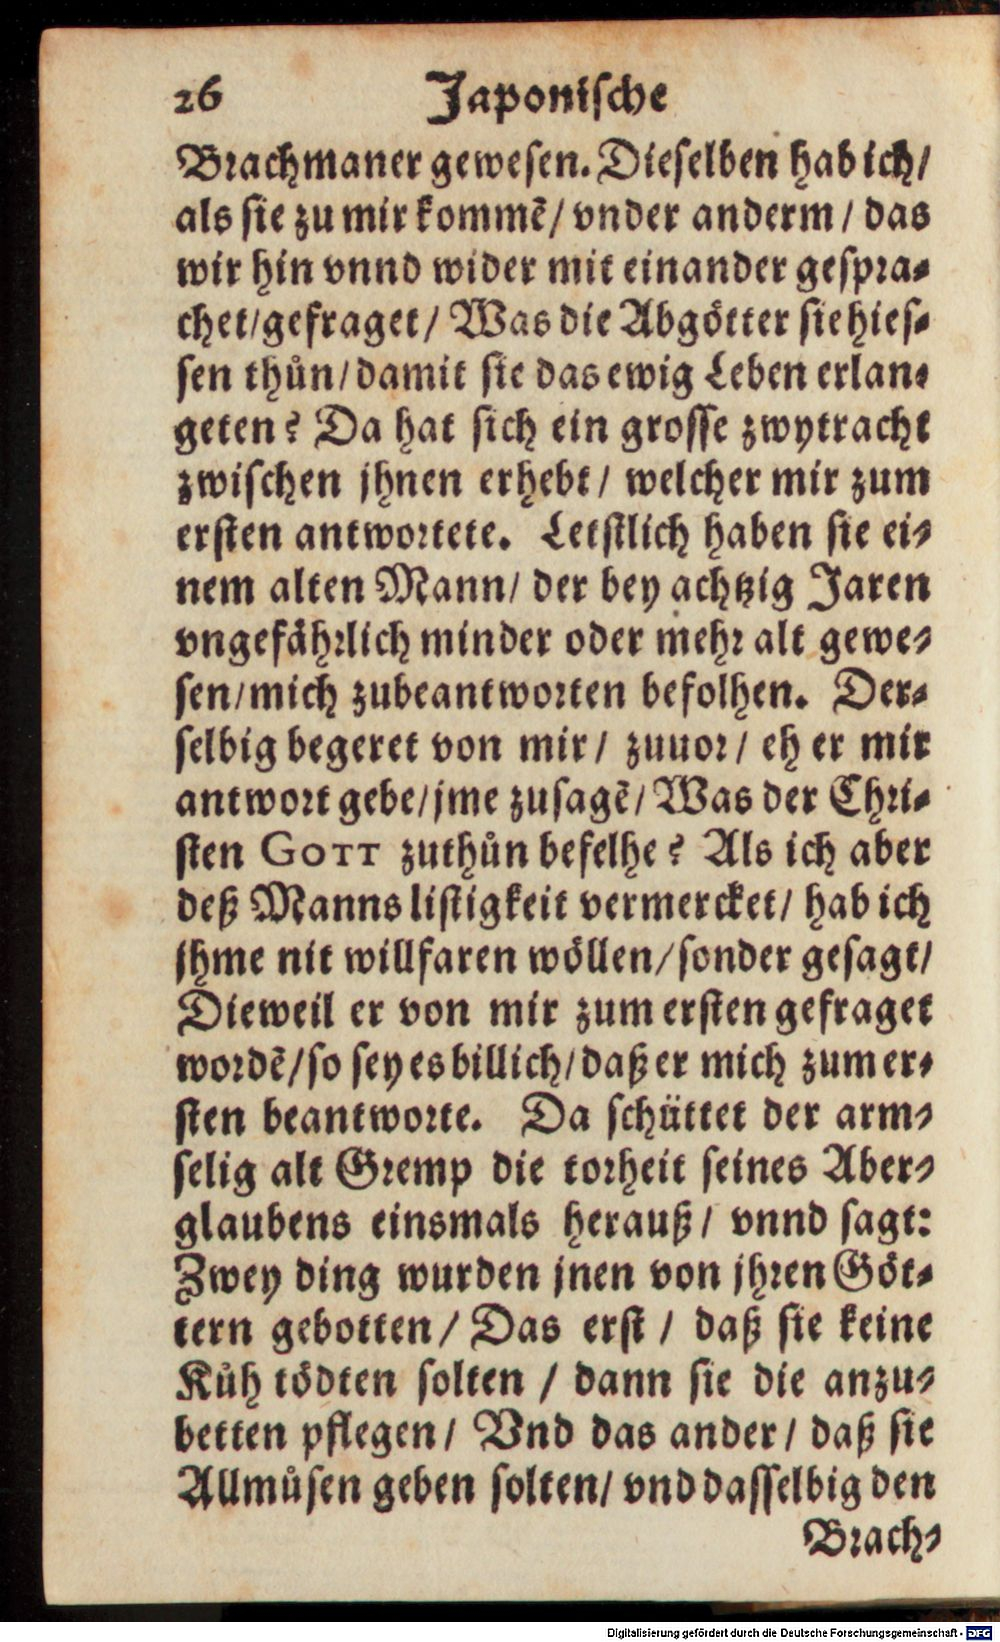 26 Japonische
Brachmaner gewesen. Dieselben hab ich/
als sie zu mir kommē/ vnder anderm/ das
wir hin vnnd wider mit einander gespra-
chet/gefraget/ Was die Abgötter sie hies-
sen thůn/damit sie das ewig Leben erlan-
geten? Da hat sich ein grosse zwytracht
zwischen jhnen erhebt/ welcher mir zum
ersten antwortete. Letstlich haben sie ei-
nem alten Mann/ der bey achtzig Jaren
vngefährlich minder oder mehr alt gewe-
sen/mich zubeantworten befolhen. Der-
selbig begeret von mir/ zuuor/ eh er mir
antwort gebe/jme zusagē/ Was der Chri-
sten GOTT zuthůn befelhe? Als ich aber
deß Manns listigkeit vermercket/ hab ich
jhme nit willfaren wöllen/sonder gesagt/
Dieweil er von mir zum ersten gefraget
wordē/so sey es billich/daß er mich zum er-
sten beantworte. Da schüttet der arm-
selig alt Gremp die torheit seines Aber-
glaubens einsmals herauß/ vnnd sagt:
Zwey ding wurden jnen von jhren Göt-
tern gebotten/ Das erst / daß sie keine
Kůh tödten solten / dann sie die anzu-
betten pflegen/ Vnd das ander/ daß sie
Allmůsen geben solten/ vnd dasselbig den
Brach-
Digitalisierung gefördert durch die Deutsche Forschungsgemeinschaft - DFG